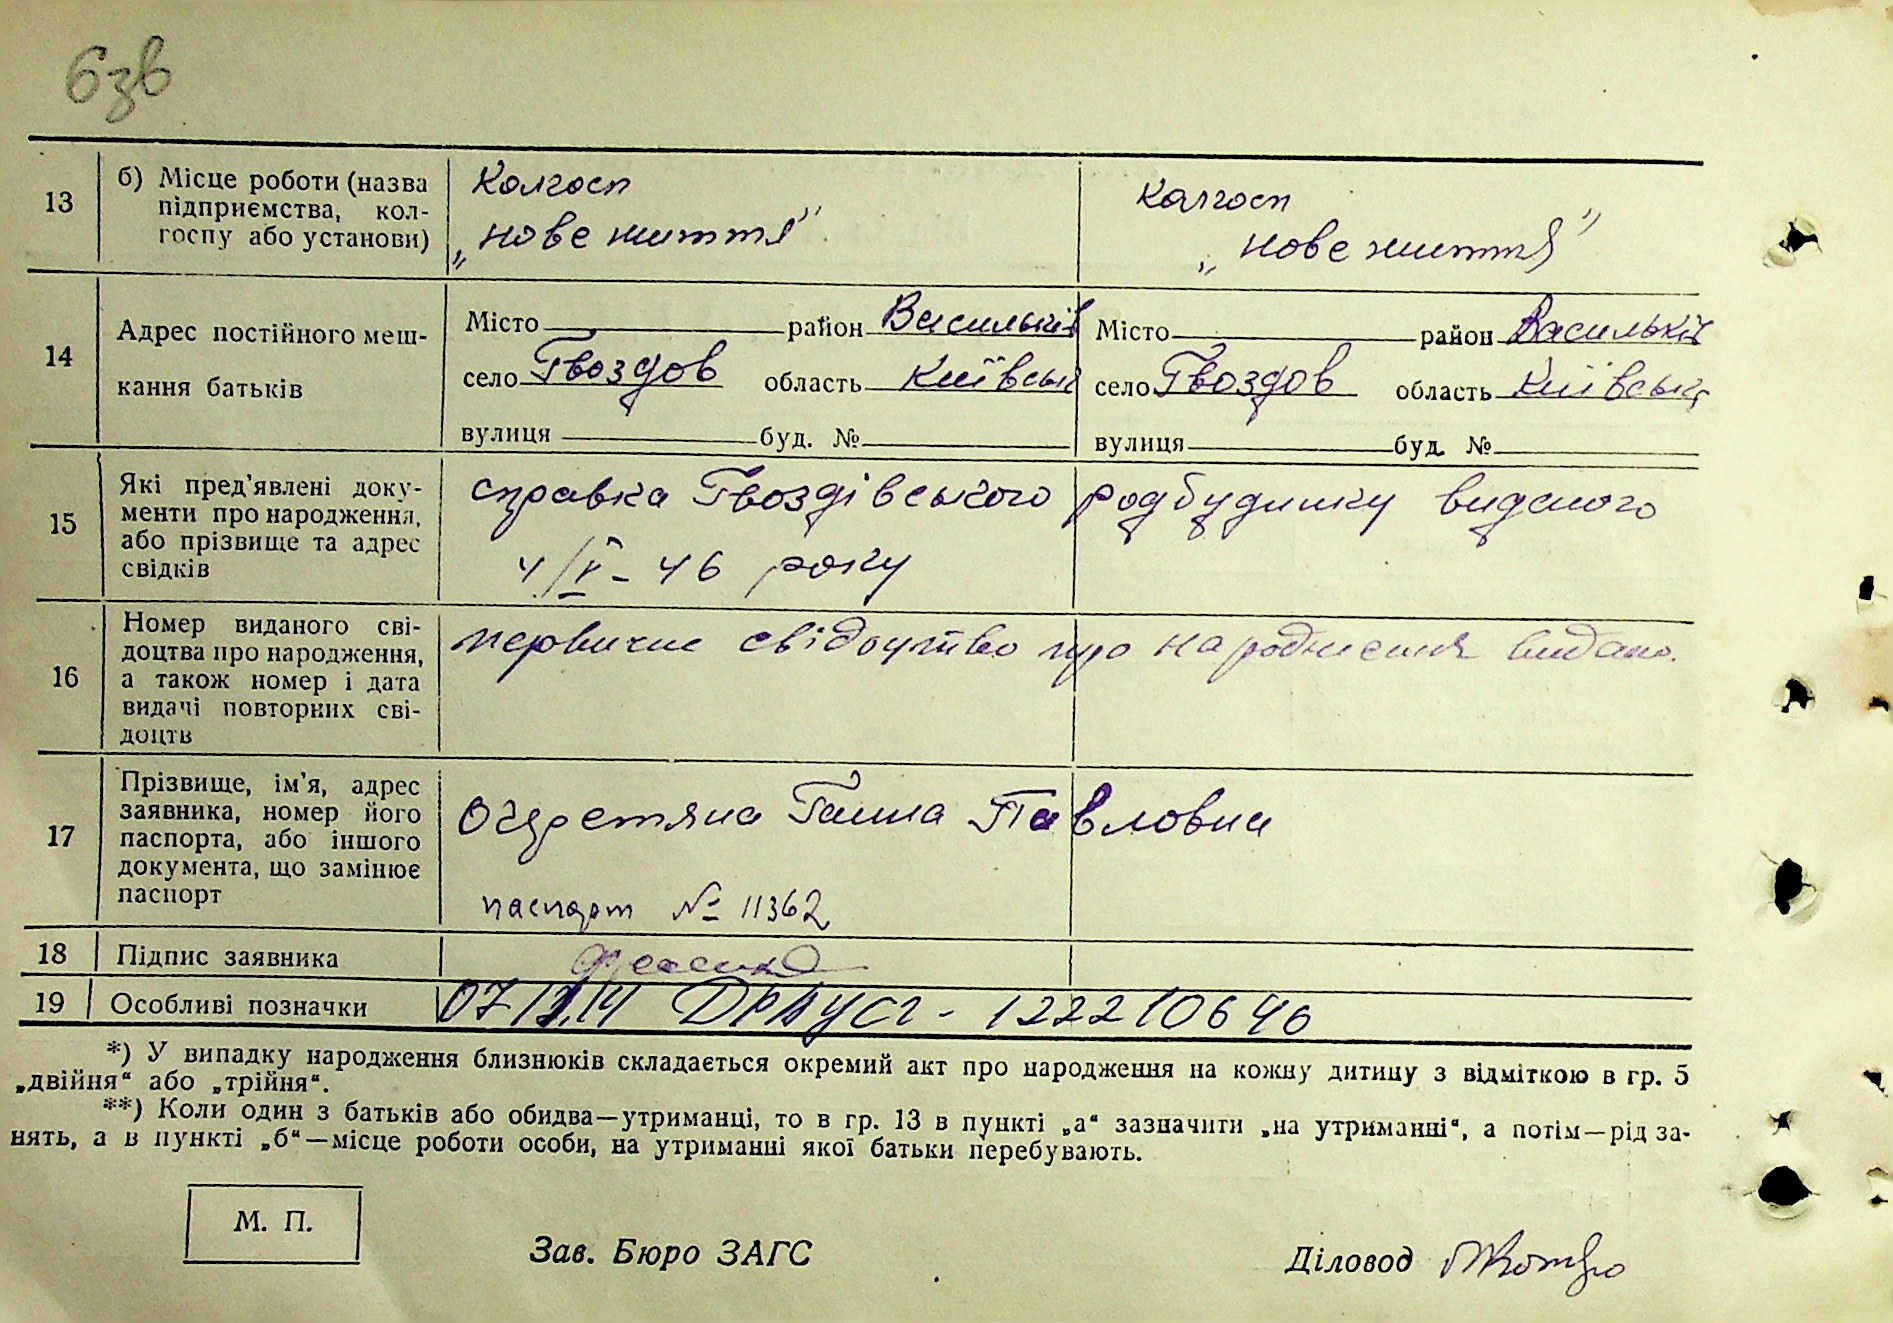 6зв
13 б) Місце роботи (назва підприємства, колгоспу або установи) Колгосп „нове життя" Колгосп „нове життя"
14 Адрес постійного мешкання батьків
Місто район Васильків Місто район Васильків
село Гвоздов область Київськ село Гвоздов область Київська
вулиця буд. № вулиця буд. №
15 Які пред'явлені документи про народження, або прізвище та адрес свідків
справка Гвоздівського родбудинку виданого
4/V-46 року
16 Номер виданого свідоцтва про народження, а також номер і дата видачі повторних свідоцтв
первичне свідоцтво про народження видано.
17 Прізвище, ім'я, адрес заявника, номер його паспорта, або іншого документа, що замінює паспорт
Очеретяна Ганна Павловна
паспорт № 11362
18 Підпис заявника
19 Особливі позначки ДРАЦСГ - 1222210646
*) У випадку народження близнюків складається окремий акт про народження на кожну дитину з відміткою в гр. 5
„двійня“ або „трійня“.
**) Коли один з батьків або обидва—утриманці, то в гр. 13 в пункті „а“ зазначити „на утриманні“, а потім—рід за-
нять, а в пункті „б“—місце роботи особи, на утриманні якої батьки перебувають.
М. П.
Зав. Бюро ЗАГС Діловод